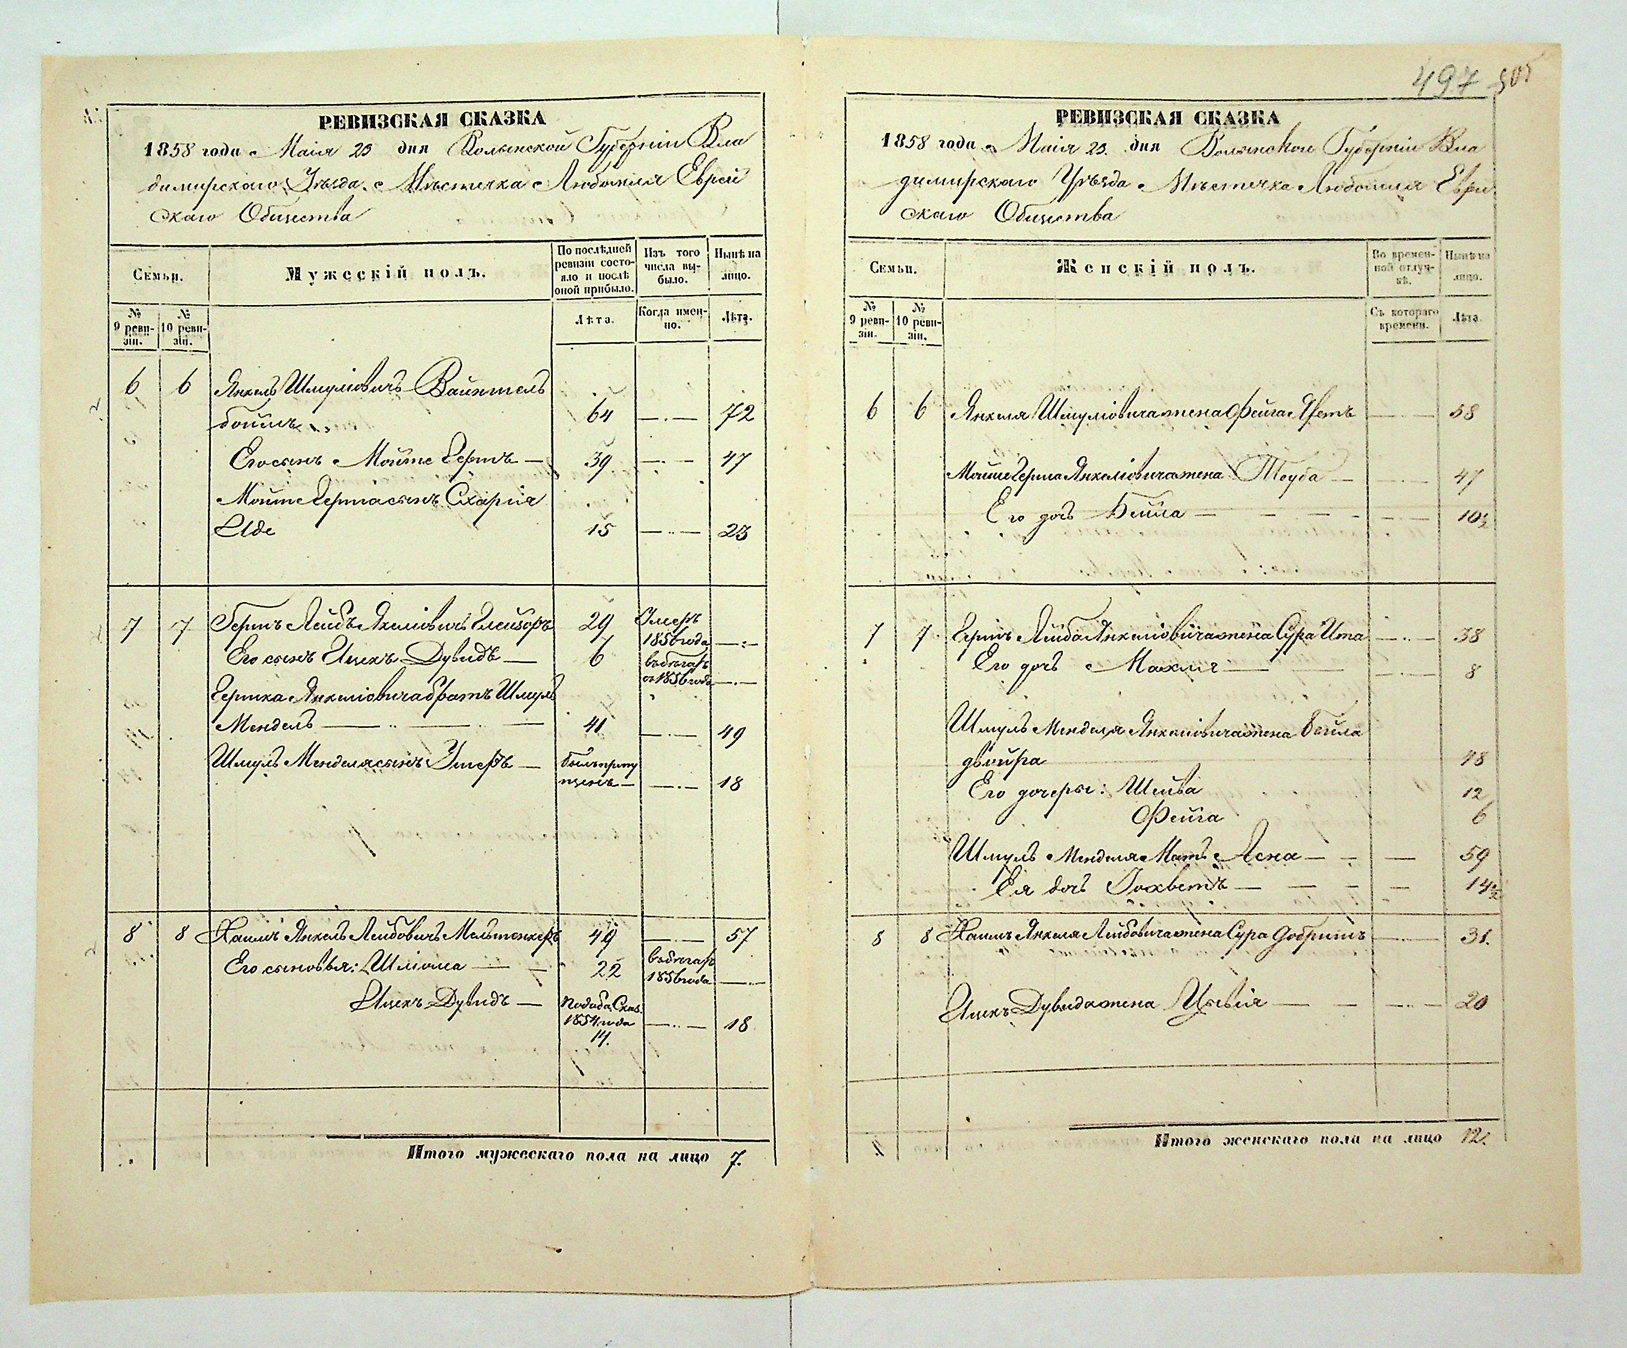 497 505
РЕВИЗСКАЯ СКАЗКА
1858 года Маія 23 дня Волынской Губерніи Вла
димирскаго Уѣзда Мѣстечка Любомля Еврей
скаго Общества
Семьи.
Мужескій полъ.
По послѣдней ревизіи состояло и послѣ оной прибыло.
Изъ того числа выбыло.
Нынѣ на лицо.
№ 9 ревизіи.
№ 10 ревизіи.
Лѣта.
Когда именно.
Лѣта.
6 6 Янкель Шмуліовичъ
64 72
Его сынъ Мойше Гершъ 39 47
Мойше Герша сынъ Схарія
15 23
7 7 Гершъ Лейбъ Янкеліовичъ 29 Умеръ 1856 года
Его сынъ Ицекъ Дувидъ 6 въ бѣгахъ съ 1856 года
Гершка Янкеліовича братъ Шмуль
Мендель 41 49
Шмуль Менделя сынъ былъ пропущенъ 18
8 8 Хаимъ Янкель Лейбовичъ 49 57
Его сыновья: Шліома 22 въ бѣгахъ 1856 года
Ицекъ Дувидъ 1854 года 14. 18
Итого мужескаго пола на лицо 7.
РЕВИЗСКАЯ СКАЗКА
1858 года Маія 23. дня Волынской Губерніи Вла
димирскаго Уѣзда Мѣстечка Любомля Еврей
скаго Общества
Семьи.
Женскій полъ.
Во временной отлучкѣ.
Нынѣ на лицо.
№ 9 ревизіи.
№ 10 ревизіи.
Съ котораго времени.
Лѣта.
6 6 Янкеля Шмуліовича жена Фейга 58
Мойше Герша Янкеліовича жена Тоуба 47
Его дочь Бейла 10½
7 7 Герша Лейба Янкеліовича жена Сура Ита 38
Его дочь Махля 8
Шмуль Менделя Янкеліовича жена Бейла
двойра 48
Его дочеры: Шейва 12
Фейга 6
Шмуль Менделя Мать 59
Ея дочь Іохветъ 14½
8 8 Хаимъ Янкеля Лейбовича жена Сура Добришъ 31.
Ицекъ Дувида жена Цывія 20
Итого женскаго пола на лицо 12.